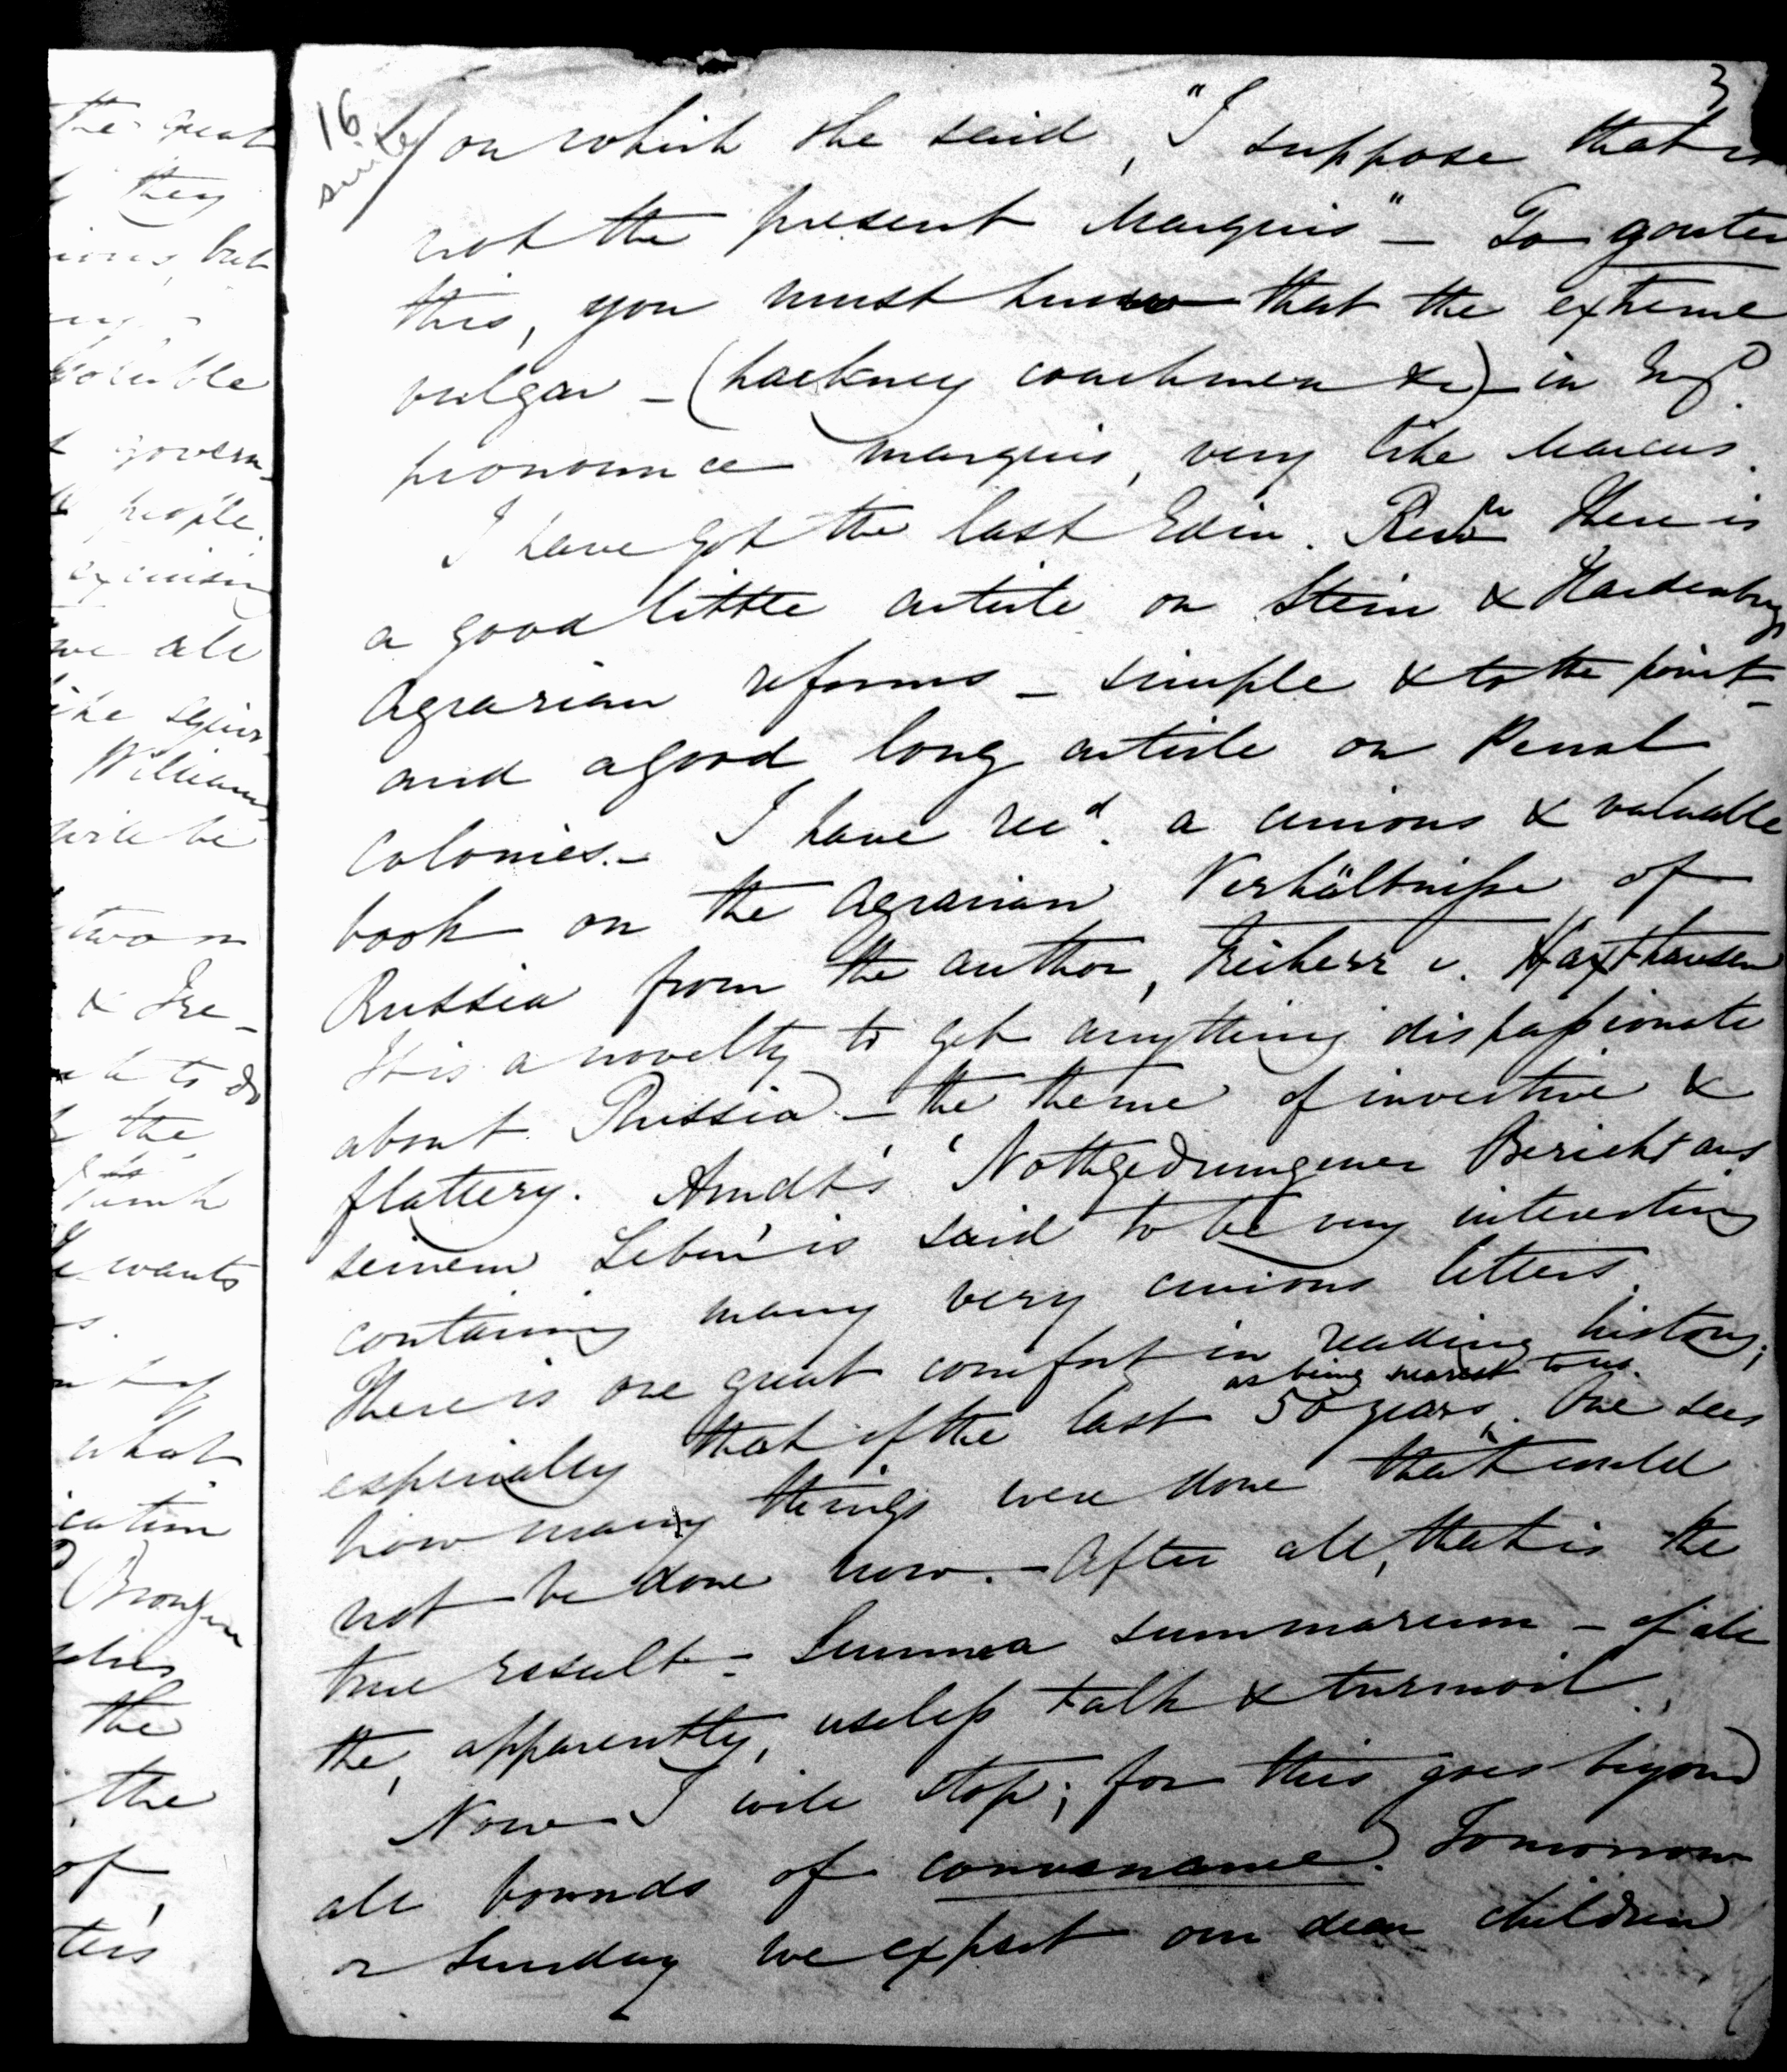 the great
they
but
govern-
people.
all
William
will be
two or
& Fre-
to do
the
wants
what
the
the
of
16
suite
3
on which she said, "I suppose that is
not the present Marquis" – To gouter
this, you must know that the extreme
vulgar – (hackney coachmen &c) – in Engd.
pronounce marquis, very like Marcus.
I have got the last Edin. Revw. There is
a good little article on Stein & Hardenbergs
Agrarian reforms – simple & to the point –
and a good long article on Penal
Colonies. – I have recd. a curious & valuable
book on the Agrarian Verhältnisse of
Russia from the author, Freiherr v. Haxthausen
It is a novelty to get anything dispassionate
about Russia – the theme of invective &
flattery. Arndt's 'Nothgedrungener Bericht aus
seinem Leben' is said to be very interesting
containing many very curious letters.
There is one great comfort in reading history;
as being nearest to us.
especially that of the last 50 years. One sees
how many things were done that could
not be done now. – After all, that is the
true result – Summa summarum – of all
the, apparently, useless talk & turmoil.
Now I will stop; for this goes beyond
all bounds of convenance. Tomorrow
or Sunday we expect our dear children